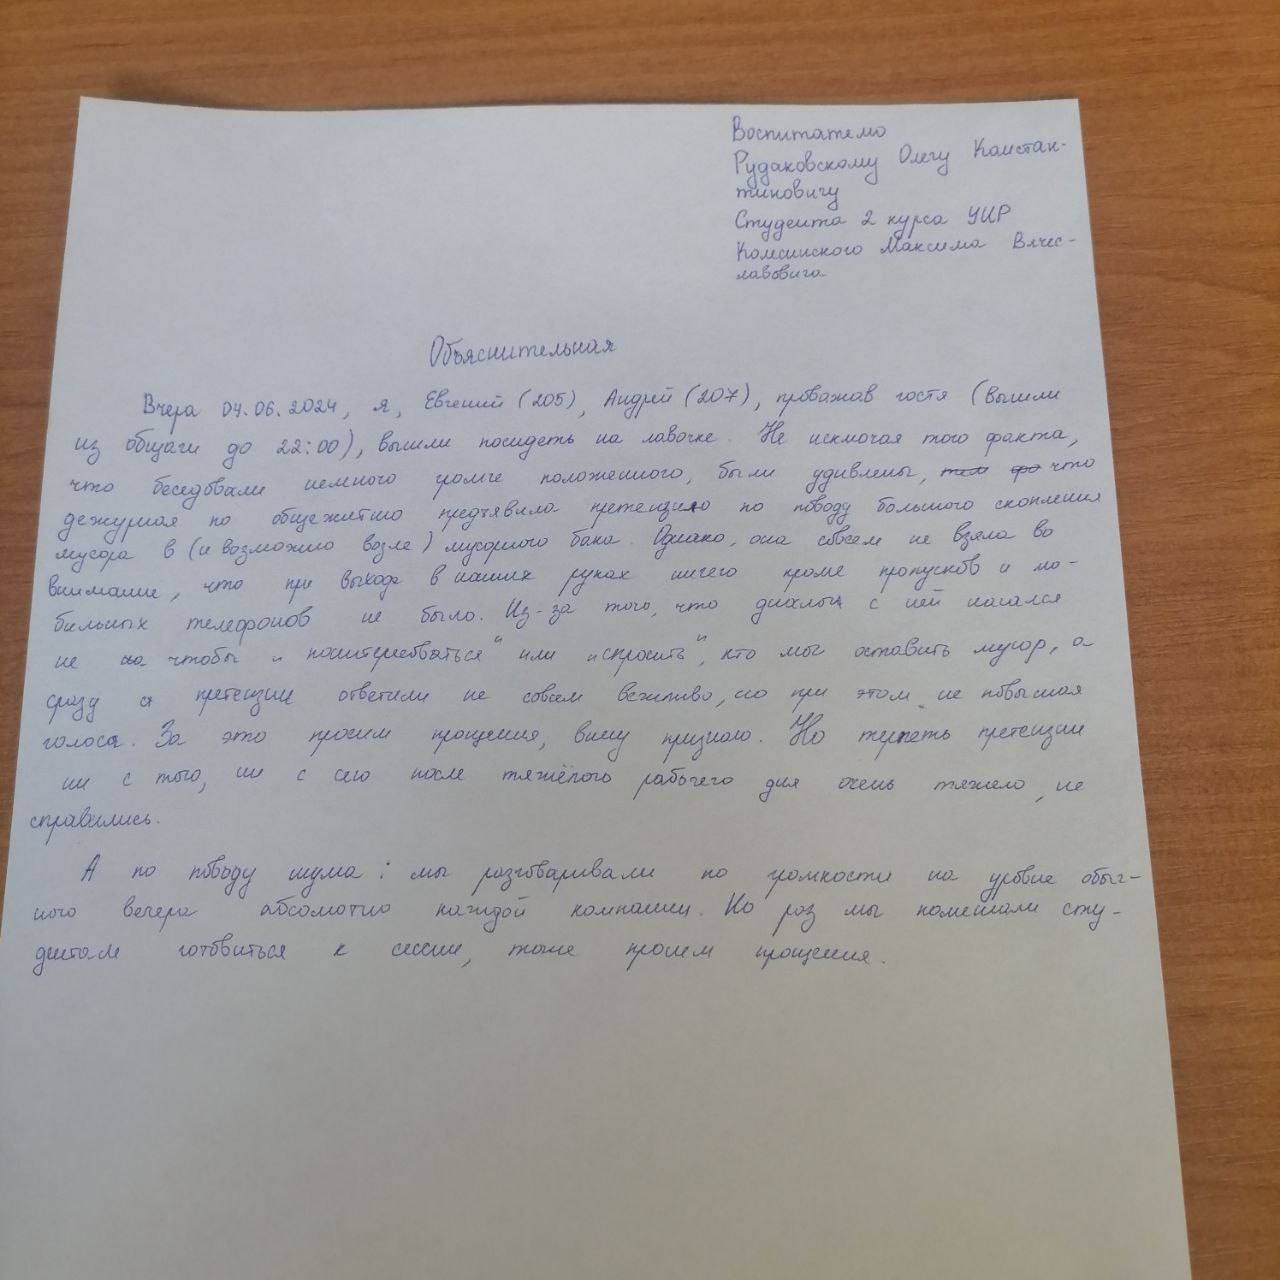 Воспитателю
Рудаковскому Олегу Констан-
тиновичу
Студента 2 курса УИР
Вячес-
лавовича
Объяснительная
Вчера 04.06.2024, я, Евгений (205), Андрей (207), проважав гостя (вышли
из общаги до 22:00), вышли посидеть на лавочке. Не исключая того факта,
что беседовали немного громче положенного, были удивлены, что
дежурная по общежитию предъявила претензию по поводу большого скопления
мусора в (и возможно возле) мусорного бака. Однако, она совсем не взяла во
внимание, что при выходе в наших руках ничего кроме пропусков и мо-
бильных телефонов не было. Из-за того, что диалог с ней начался
не чтобы "поинтересоваться" или "спросить", кто мог оставить мусор, а
сразу с претензии ответили не совсем вежливо, но при этом не повышая
голоса. За это просим прощения, вину признаю. Но терпеть претензии
ни с того, ни с сего после тяжёлого рабочего дня очень тяжело, не
справились.
А по поводу шума: мы разговаривали по громкости на уровне обыч-
ного вечера абсолютно каждой компании. Но раз мы помешали сту-
дентам готовиться к сессии, тоже просим прощения.